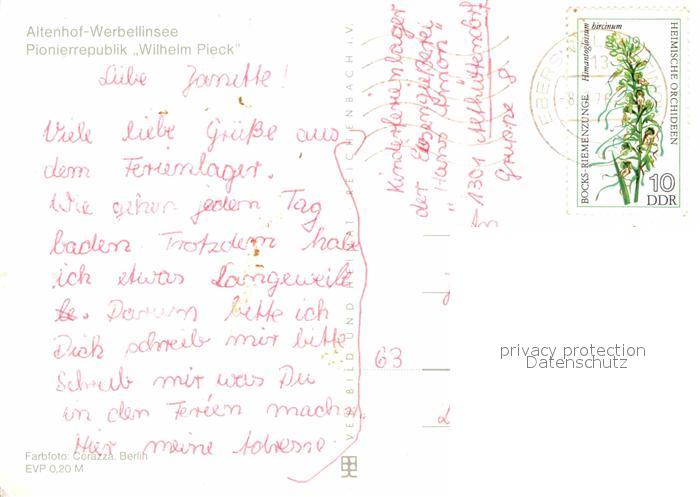 Altenhof-Werbellinsee
Pionierrepublik „Wilhelm Pieck"
Liebe Janette!
Viele liebe Grüße aus
dem Ferienlager.
Wir gehen jeden Tag
baden Trotzdem habe
ich etwas Langeweile
Darum bitte ich
Dich schreib mir bitte
Schreib mir was Du
in den Ferien machst.
Hier meine Adresse:
Farbfoto: Corazza, Berlin
EVP 0,20 M
VEB BILD UND HEIMAT REICHENBACH i. V.
63
Kinderferienlager
der Eisengießerei
"Hans Ammon"
1301 Althüttendorf
Gruppe 8
BOCKS-RIEMENZUNGE Himantoglossum hircinum
HEIMISCHE ORCHIDEEN
10
DDR
EBERS
13
privacy protection
Datenschutz